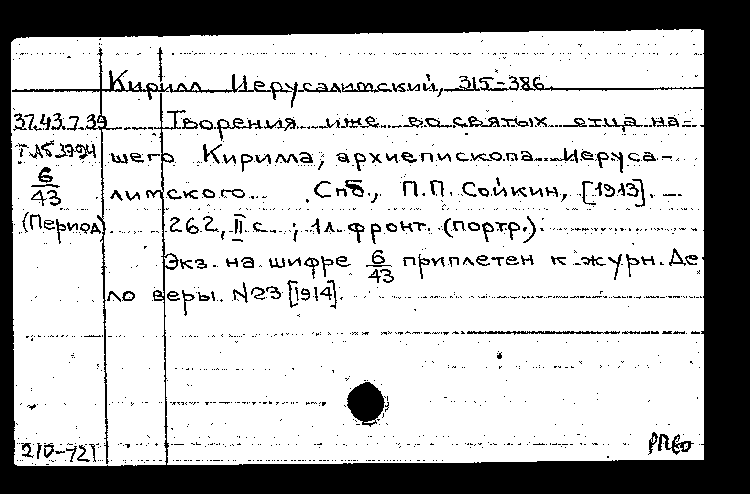 Кирилл Иерусалимский, 315-386.
37.43.7.39
Творения иже во святых отца на-
шего Кирилла, архиепископа Иеруса-
6/43
лимского. Спб., П.П. Сойкин, [1913]. —
(Период)
262, II с.; 1 л. фронт. (портр.).
Экз. на шифре 6/43 приплетен к журн. Де
ло веры. N23 [1914].
210-721